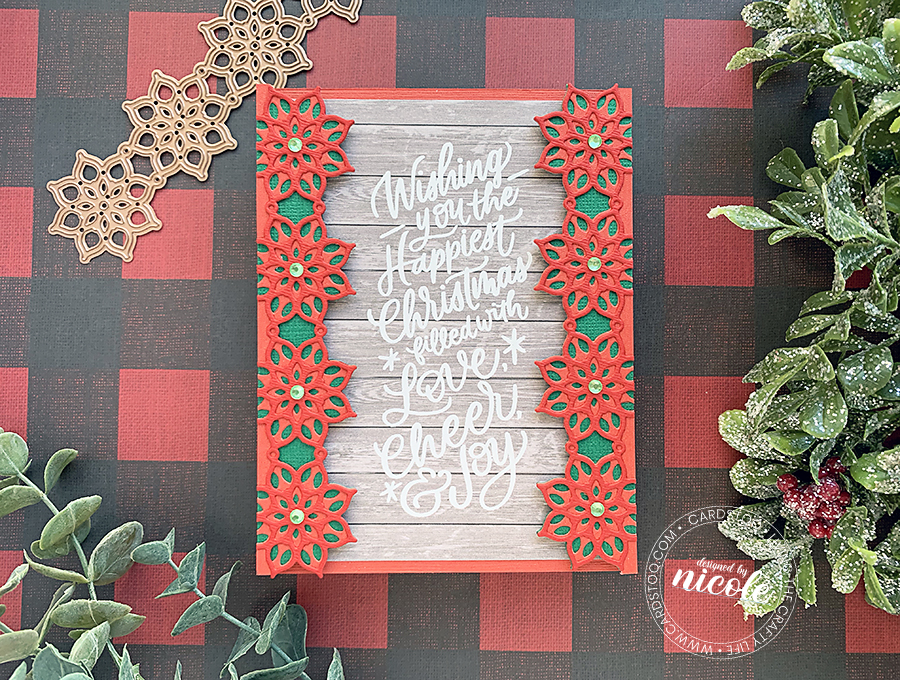 Wishing
you the
Happiest
Christmas
filled with
Love,
Cheer,
& Joy
designed by
nicole
WWW.CARDSTOQ.COM
THE CRAFTY LIFE